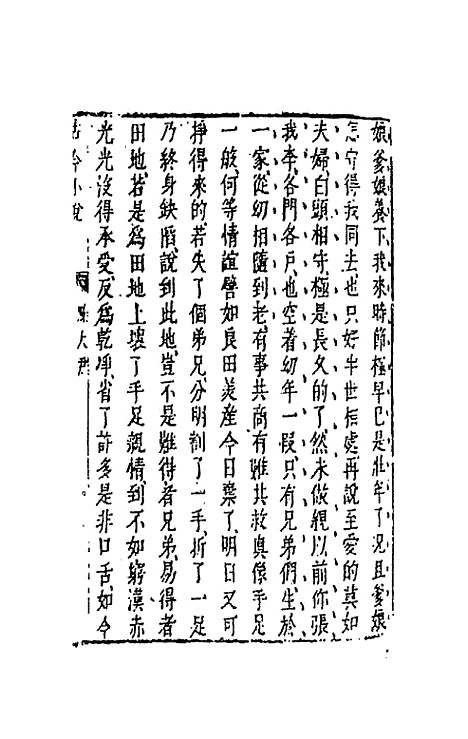 娘爹娘養下我來時節極早已是壯年了況且爹娘
怎守得我同去也只好半世相處再說至愛的莫如
夫婦白頭相守極是長久的了然未做親以前你張
我李各門各戶也空著幼年一段只有兄弟們生於
一家從幼相隨到老有事共商有難共救真像手足
一般何等情誼譬如良田美產今日棄了明日又可
掙得來的若失了個弟兄分明割了一手折了一足
乃終身缺陷說到此地豈不是難得者兄弟易得者
田地若是為田地上壞了手足親情到不如窮漢赤
光光沒得承受反為乾淨省了許多是非口舌如今
古今小說